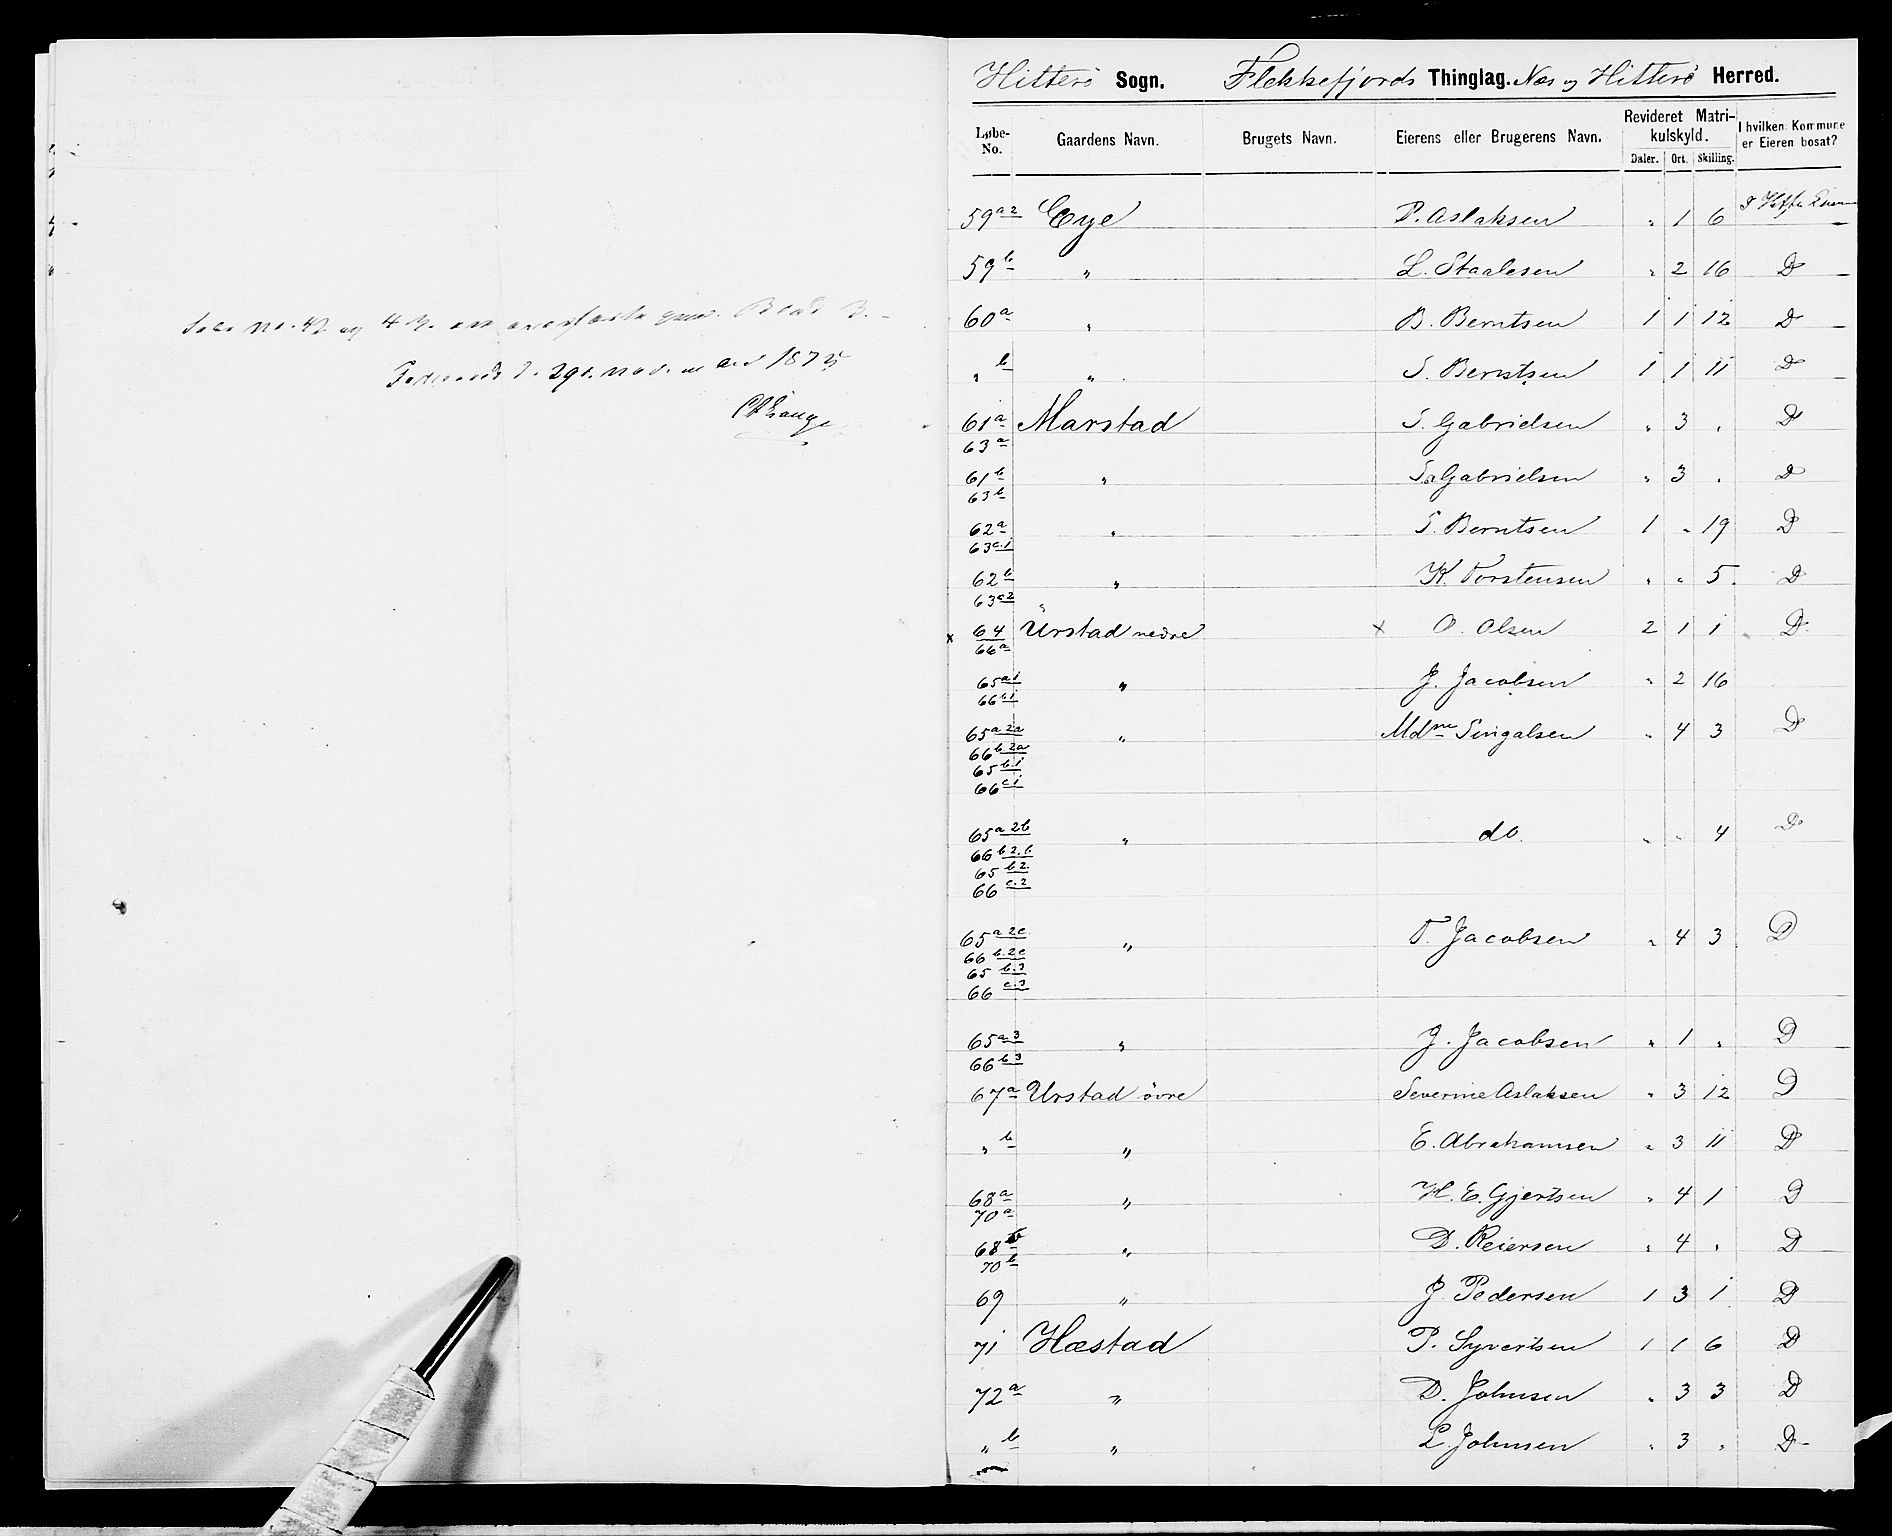 No. 42 og 43.
29. 1875
Hitterö Sogn. Flekkefjords Thinglag. Næs og Hitterö Herred.
Løbe-No. Gaardens Navn. Brugets Navn. Eierens eller Brugerens Navn. Revideret Matrikulskyld. Daler. Ort. Skilling. I hvilken Kommune er Eieren bosat?
59 a2 Eye P. Aslaksen " 1 6
59 b " L. Staalesen " 2 16 D
60 a " B. Berntsen 1 1 12 D
" b " S. Berntsen 1 1 11 D
61 a Marstad S. Gabrielsen " 3 " D
63 a
61 b " Gabrielsen " 3 " D
63 b
62 a " S. Berntsen 1 " 19 D
63 c.1
62 b " K. Torstensen " " 5. D
63 c2
x 64 Urstad nedre x O. Olsen 2 1 1 D
66 a
65 a.1 " J. Jacobsen " 2 16
66 b1
65 a 2a " Mdme Singalsen " 4 3 D
66 b. 2a
65 b.1
66 c1
65 a 2b " do. " " 4 D
66 b 2. b.
65 b 2.
66 c. 2
65 a 2c " T. Jacobsen " 4 3 D
66 b. 2c
65 b.3
66 c.3
65 a.3 " J. Jacobsen " 1 " D
66 b 3
67 a Urstad övre Severine Aslaksen " 3 12 D
" b " E. Abrahamsen " 3 11 D
68 a " H. E. Gjertsen " 4 1 D
70 a
68 b " D. Reiersen " 4 " D
70 b
69 " J. Pedersen 1 3 1 D
71 Hæstad P. Syvertsen 1 1 6 D
72 a " D. Johnsen " 3 3 D
" b " L. Johnsen " 3 " D